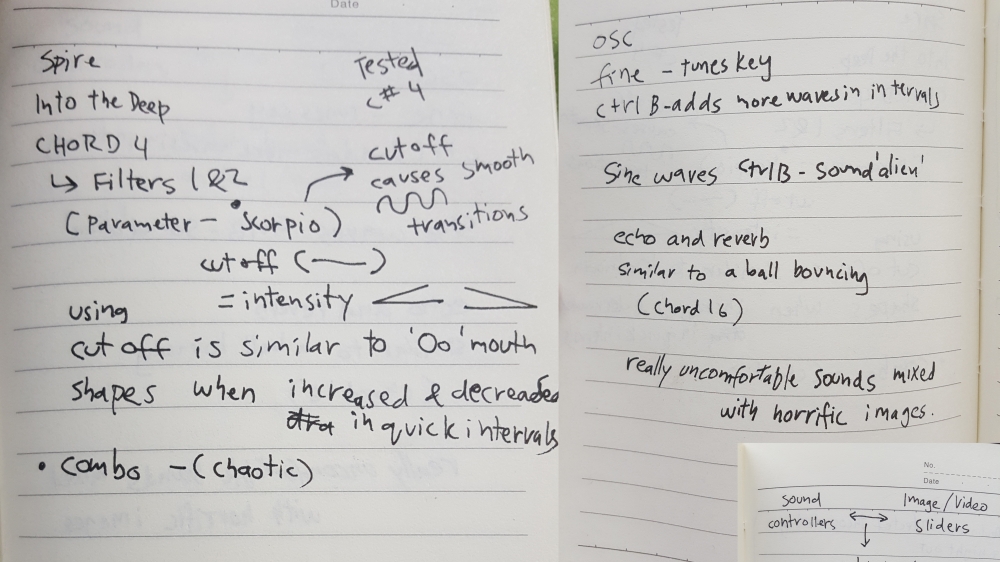 Date
Spire
Tested
C#4
Into the Deep
CHORD 4
↳ Filters 1 & 2
cutoff
causes smooth
transitions
(Parameter - Skorpio)
cutoff (—)
= intensity
using
cut off is similar to 'Oo' mouth
shapes when increased & decreaded
in quick intervals
• combo - (chaotic)
OSC
fine - tunes key
ctrl B - adds more waves in intervals
Sine waves ctrl B - sound 'alien'
echo and reverb
similar to a ball bouncing
(chord 16)
really uncomfortable sounds mixed
with horrific images.
No.
Date
sound
controllers
Image/Video
sliders